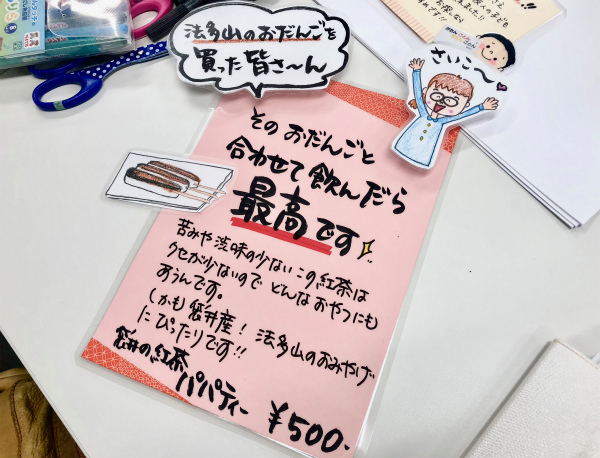 法多山のおだんごを
買った皆さ〜ん
さいこ〜
そのおだんごと
合わせて飲んだら
最高です
苦みや渋味の少ないこの紅茶は
クセが少ないので どんなおやつにも
あうんです。
しかも袋井産! 法多山のおみやげ
にぴったりです!!
袋井の紅茶
パパティー
¥500-